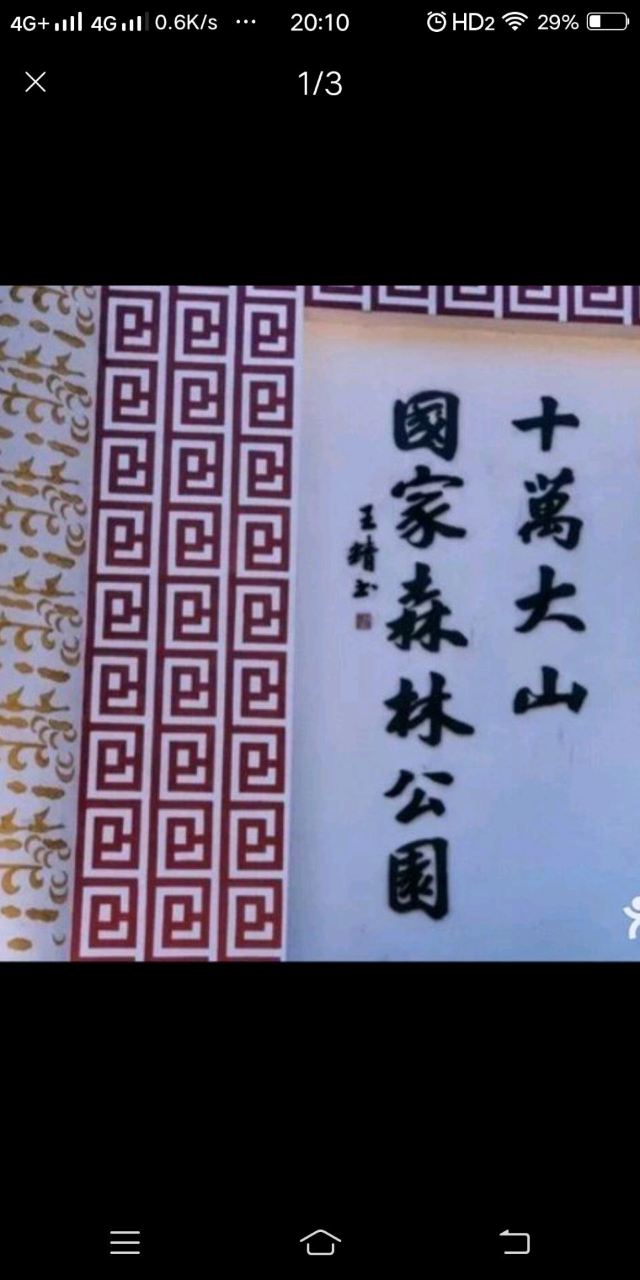 4G+ 4G 0.6K/s ··· 20:10 HD2 29%
1/3
十萬大山
國家森林公園